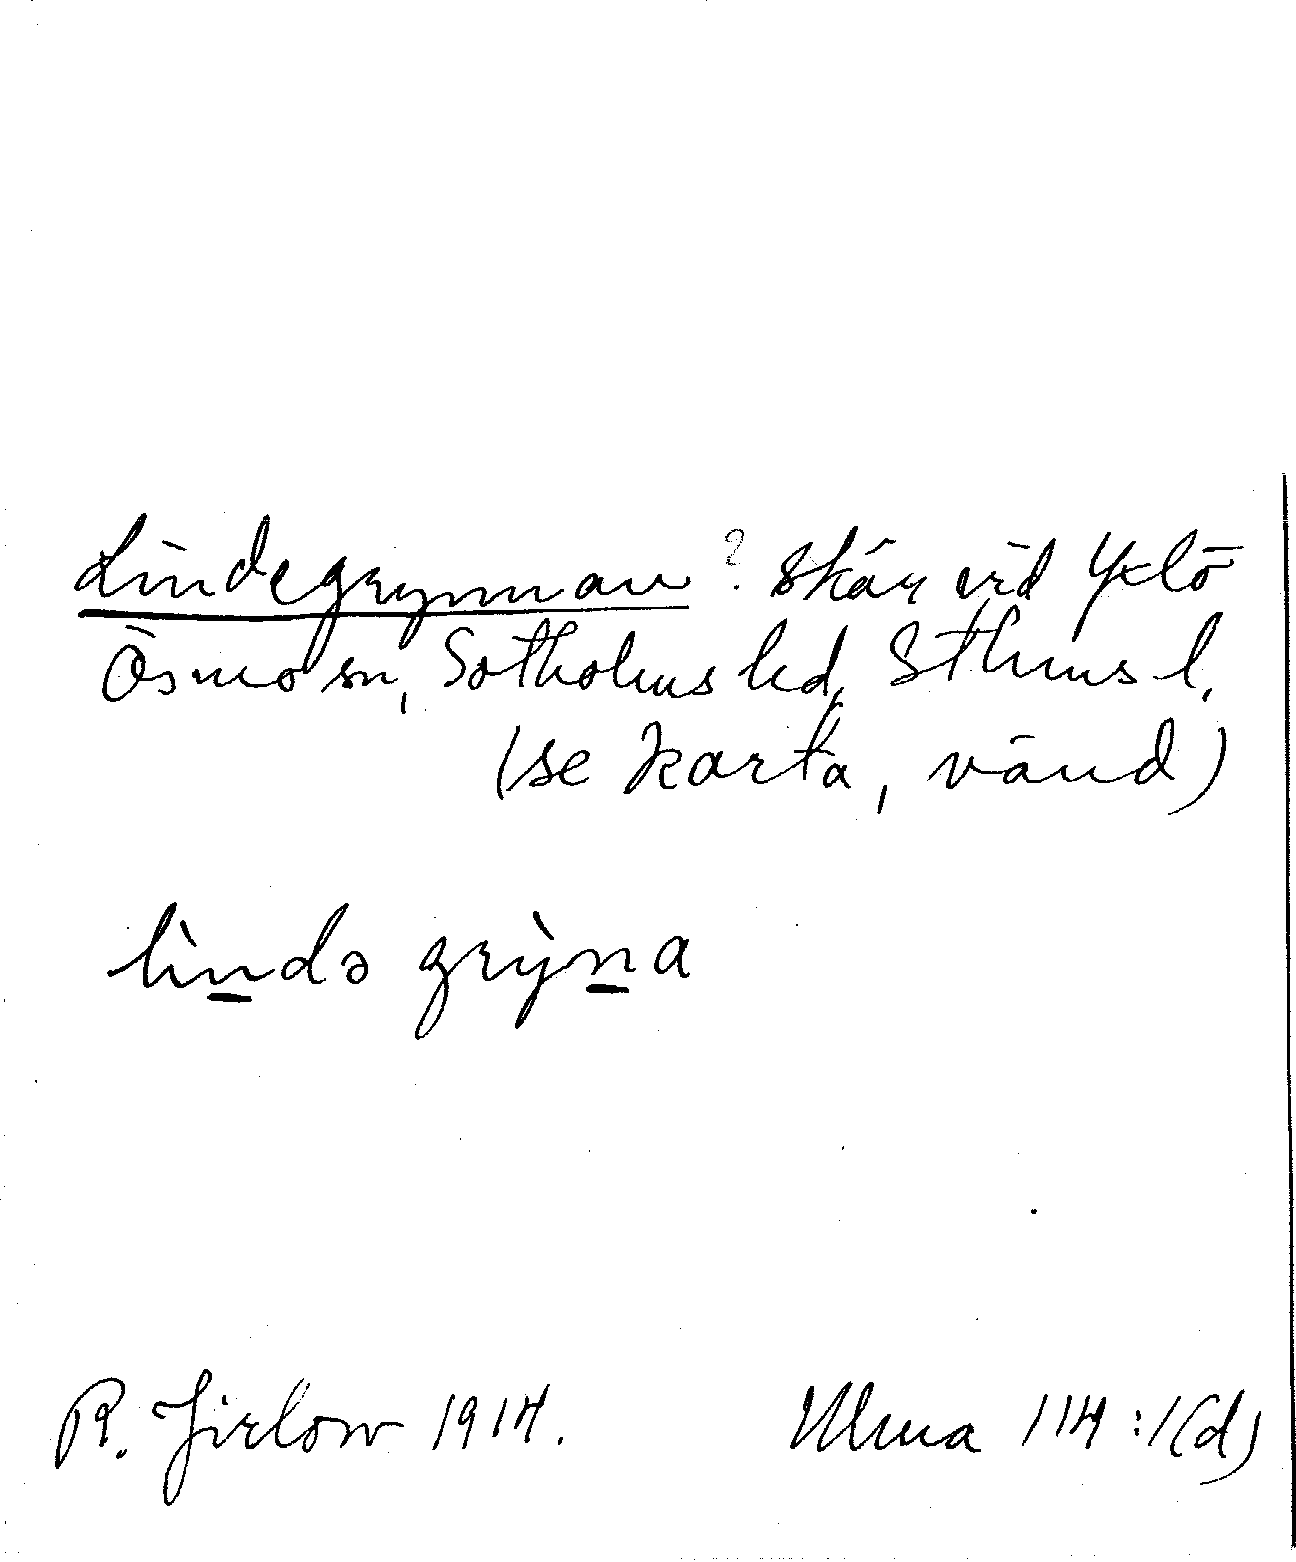 Lindegrynnan ? skär vid Yxlö
Ösmo sn, Sotholms hd, Sthms l.
(se karta, vänd)
lìndə grỳna
R. Jirlow 1914.
Ulma 114:1(d)